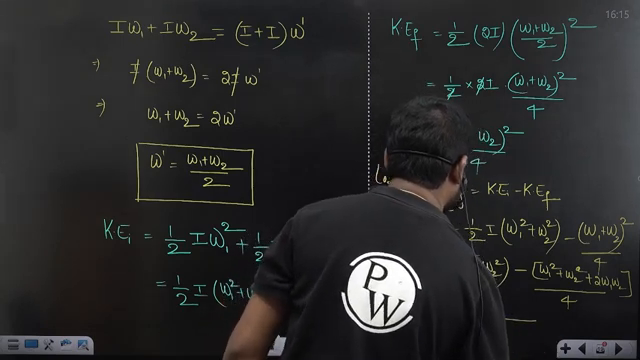 Iω₁ + Iω₂ = (I + I) ω'
⇒ I (ω₁+ω₂) = 2I ω'
⇒ ω₁ + ω₂ = 2ω'
ω' = (ω₁+ω₂)/2
K.Ei = 1/2 Iω₁² + 1/2
= 1/2 I (ω₁² +
K.Ef = 1/2 (2I) ((ω₁+ω₂)/2)²
= 1/2 × 2I . (ω₁+ω₂)²/4
ω₂)²/4
= K.Ei - K.Ef
1/2 I (ω₁² + ω₂²) - (ω₁+ω₂)²/4
ω₂²) - [ω₁² + ω₂² + 2ω₁ω₂]/4
P
W
16:15